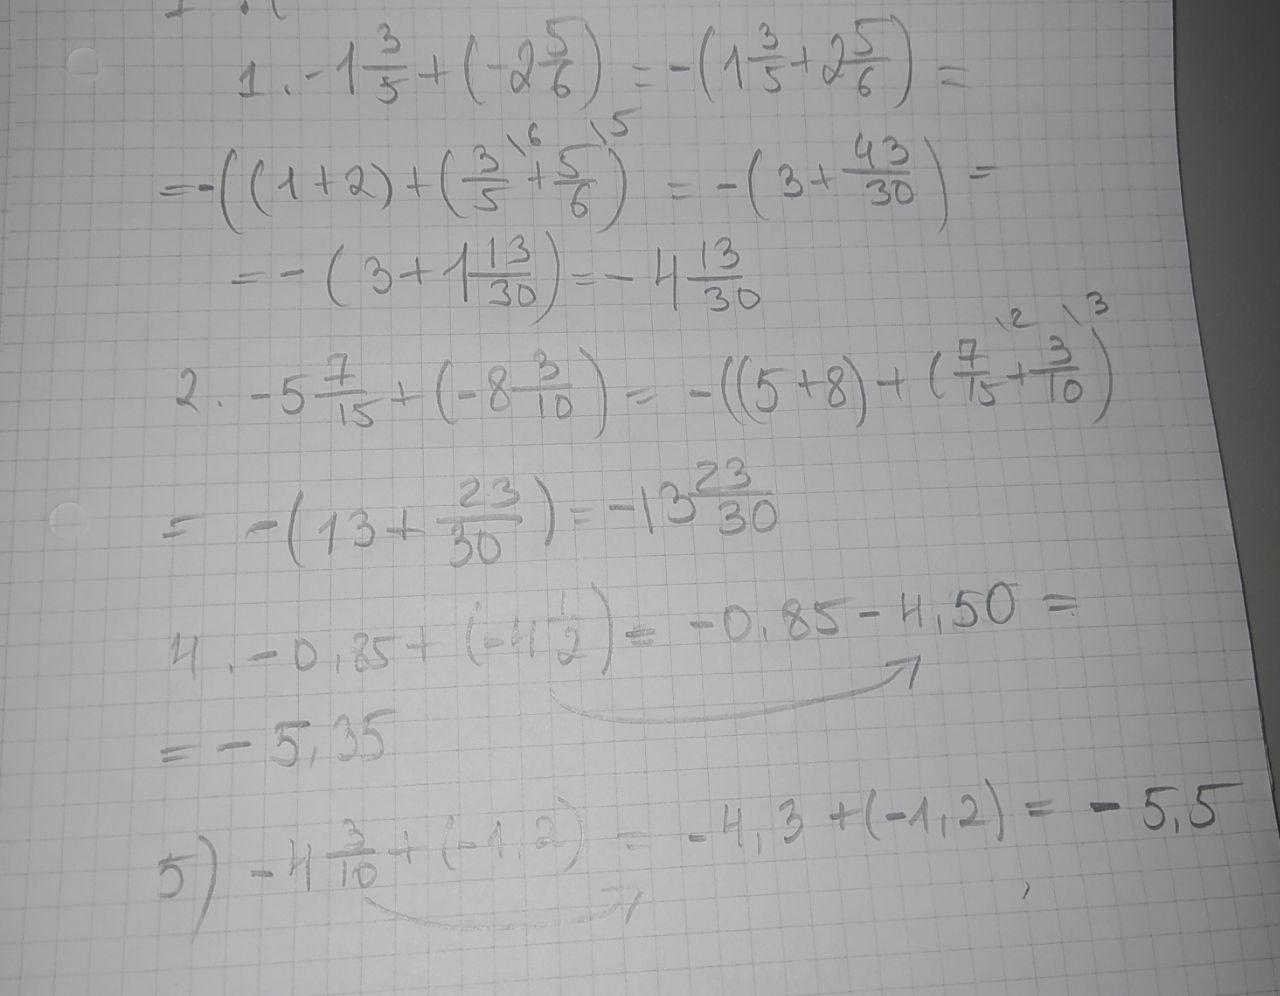 1. -1 3/5 + (-2 5/6) = -(1 3/5 + 2 5/6) =
= -((1+2) + (3/5 \6 + 5/6 \5) = -(3 + 43/30) =
= -(3 + 1 13/30) = -4 13/30
2. -5 7/15 + (-8 3/10) = -((5+8) + (7/15 \2 + 3/10 \3)
= -(13 + 23/30) = -13 23/30
4. -0,85 + (-4 1/2) = -0,85 - 4,50 =
= -5,35
5) -4 3/10 + (-1,2) = -4,3 + (-1,2) = -5,5